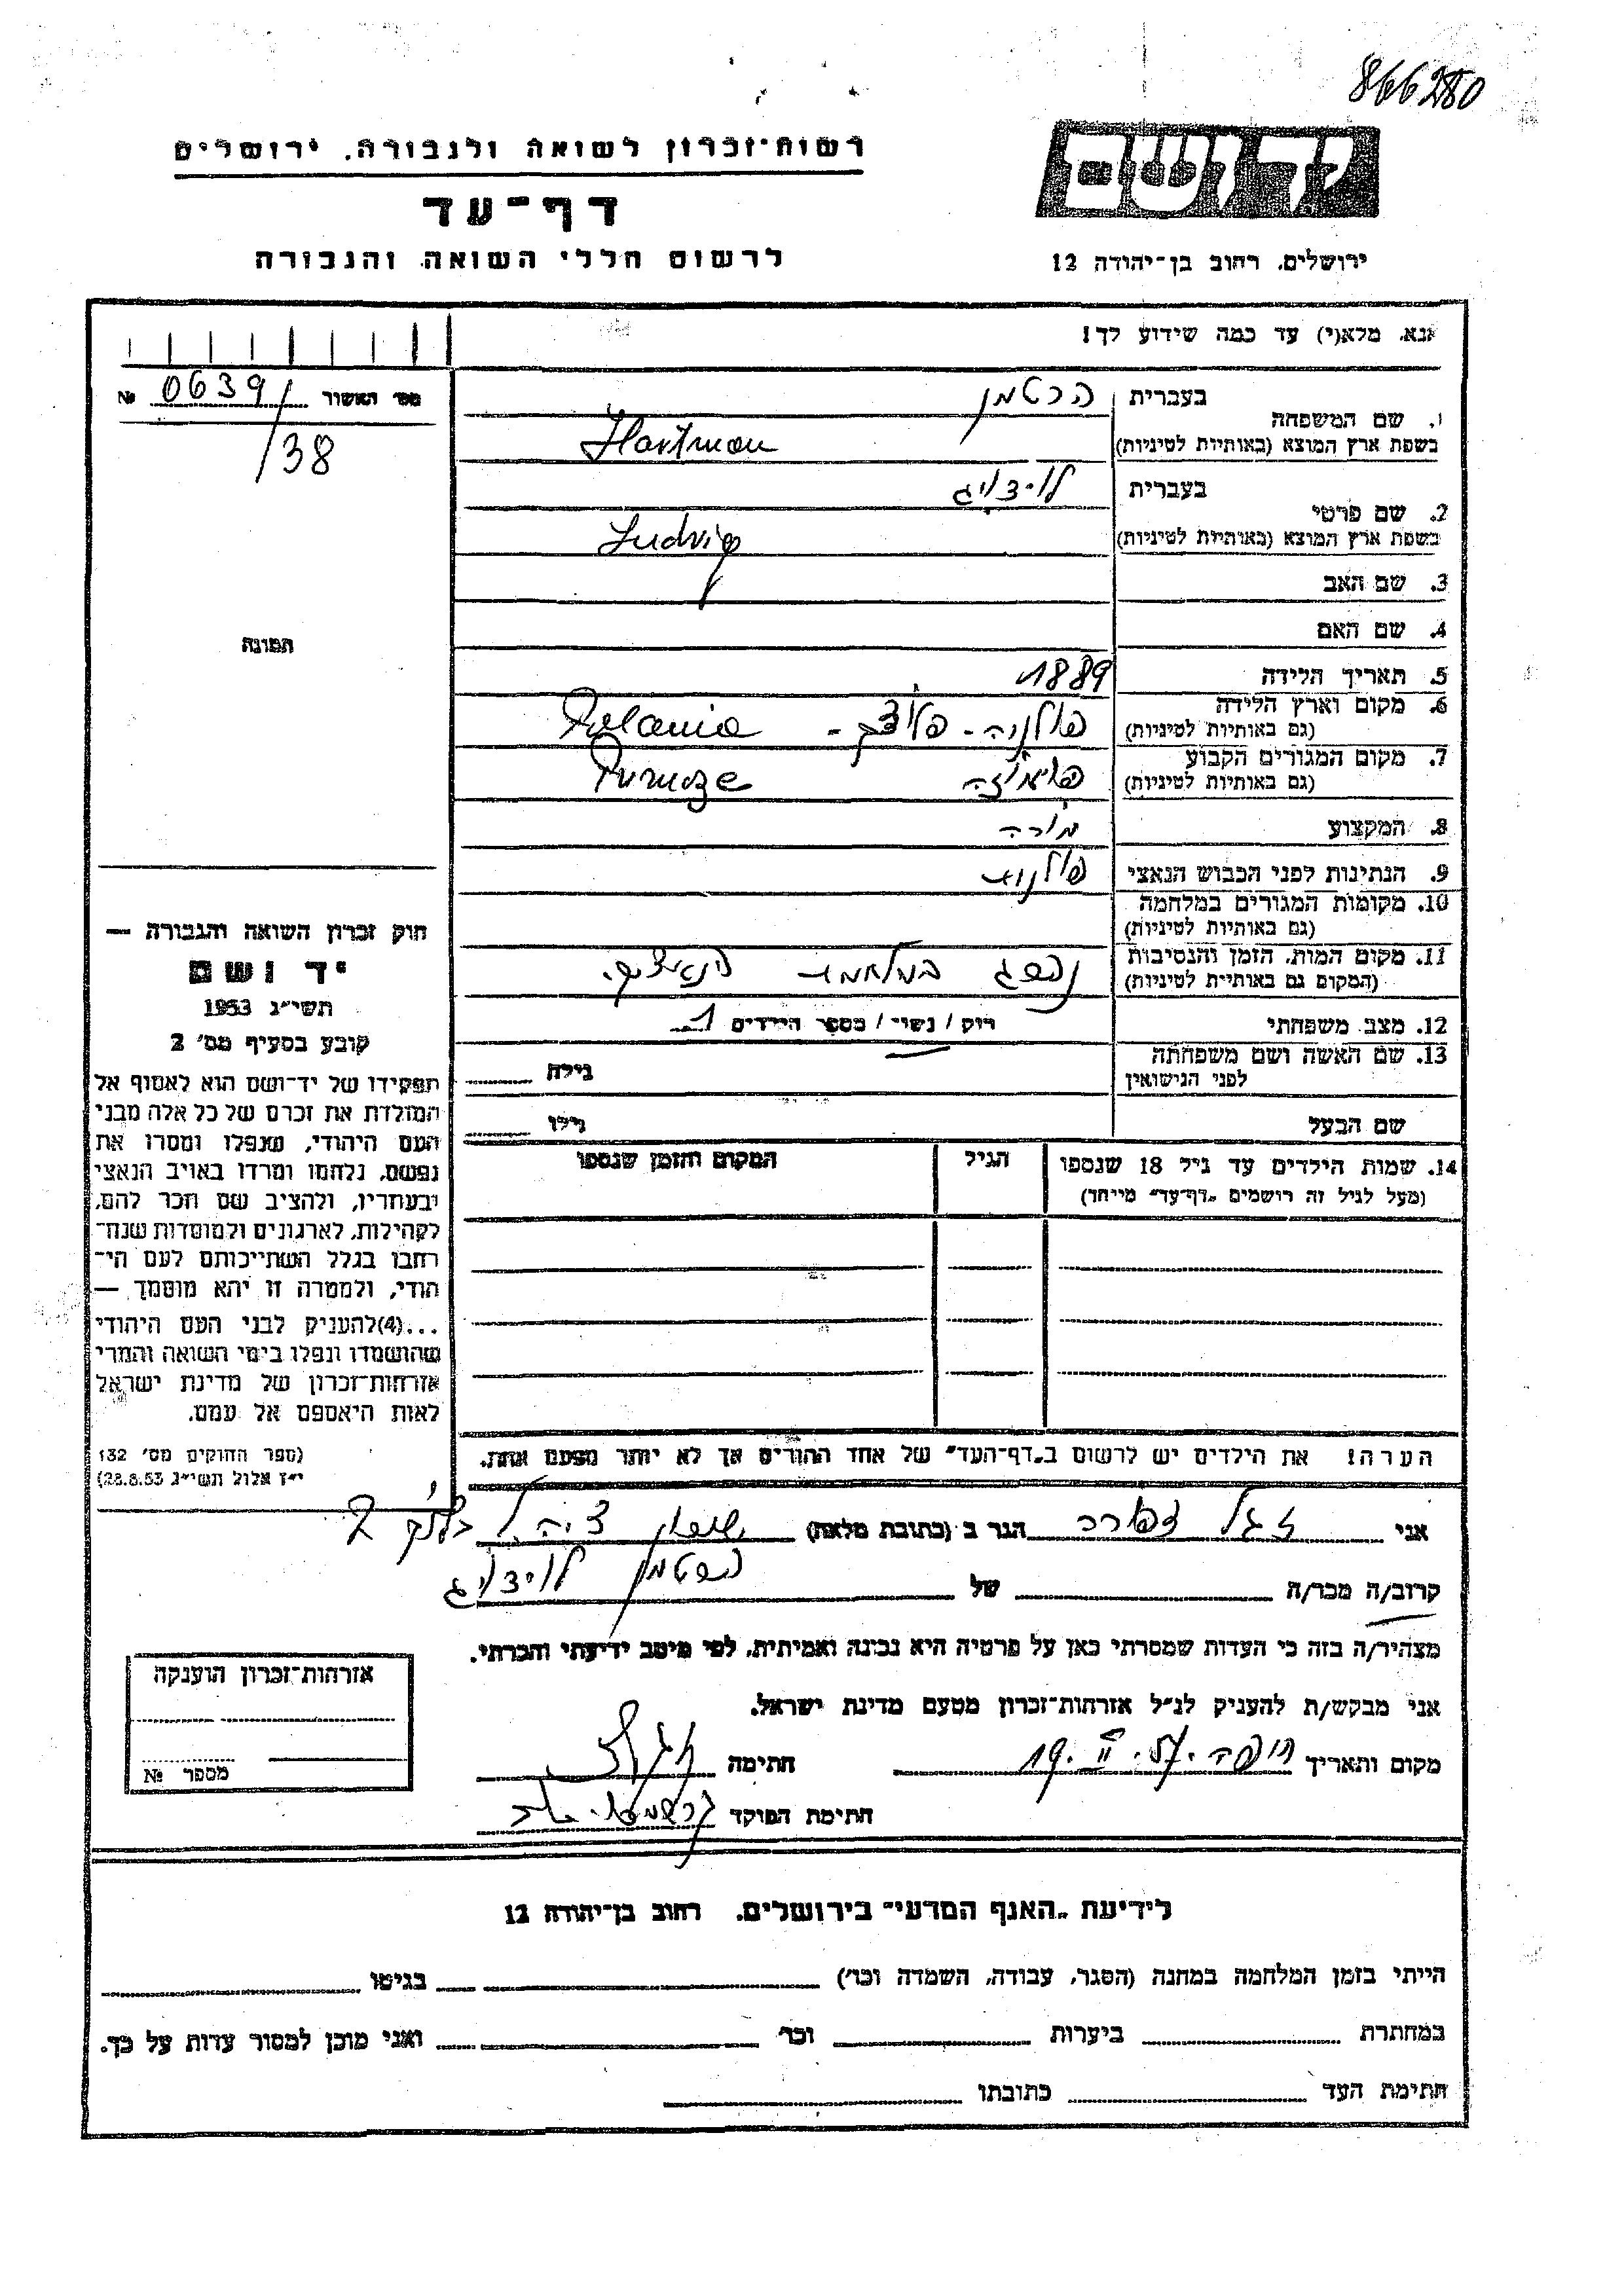 866280
רשות־זכרון לשואה ולגבורה, ירושלים
דף־עד
לרשום חללי השואה והגבורה
יד ושם
ירושלים, רחוב בן־יהודה 12
אנא, מלא(י) עד כמה שידוע לך!
מס׳ האשור № 0639/
/38
1. שם המשפחה
בעברית הרטמן
בשפת ארץ המוצא (באותיות לטיניות) Hartman
2. שם פרטי
בעברית
בשפת ארץ המוצא (באותיות לטיניות) Ludvig
3. שם האב
4. שם האם
5. תאריך הלידה 1889
6. מקום וארץ הלידה
(גם באותיות לטיניות) פולניה - Polania
7. מקום המגורים הקבוע
(גם באותיות לטיניות)
8. המקצוע מורה
9. הנתינות לפני הכבוש הנאצי פולנית
10. מקומות המגורים במלחמה
(גם באותיות לטיניות)
11. מקום המות, הזמן והנסיבות
(המקום גם באותיות לטיניות) במלחמת
12. מצב משפחתי רוק / נשוי / מספר הילדים 1
13. שם האשה ושם משפחתה
לפני הנישואין גילה
שם הבעל גילו
14. שמות הילדים עד גיל 18 שנספו
(מעל לגיל זה רושמים „דף־עד״ מיוחד)
הגיל
המקום והזמן שנספו
הערה! את הילדים יש לרשום ב„דף־העד״ של אחד ההורים אך לא יותר מפעם אחת.
תמונה
חוק זכרון השואה והגבורה —
יד ושם
תשי״ג 1953
קובע בסעיף מס׳ 2
תפקידו של יד־ושם הוא לאסוף אל
המולדת את זכרם של כל אלה מבני
העם היהודי, שנפלו ומסרו את
נפשם, נלחמו ומרדו באויב הנאצי
ובעוזריו, ולהציב שם וזכר להם,
לקהילות, לארגונים ולמוסדות שנח־
רבו בגלל השתייכותם לעם הי־
הודי, ולמטרה זו יהא מוסמך —
...(4)להעניק לבני העם היהודי
שהושמדו ונפלו בימי השואה והמרי
אזרחות־זכרון של מדינת ישראל
לאות היאספם אל עמם.
(ספר החוקים מס׳ 132
י״ז אלול תשי״ג 28.8.53)
אני הגר ב (כתובת מלאה)
קרוב/ה מכר/ה של
מצהיר/ה בזה כי העדות שמסרתי כאן על פרטיה היא נכונה ואמיתית, לפי מיטב ידיעתי והכרתי.
אני מבקש/ת להעניק לנ״ל אזרחות־זכרון מטעם מדינת ישראל.
מקום ותאריך חיפה חתימה
חתימת הפוקד
אזרחות־זכרון הוענקה
מספר №
לידיעת „האגף המדעי״ בירושלים, רחוב בן־יהודה 12
הייתי בזמן המלחמה במחנה (הסגר, עבודה, השמדה וכר׳) בגיטו
במחתרת ביערות וכר׳ ואני מוכן למסור עדות על כך.
חתימת העד כתובתו